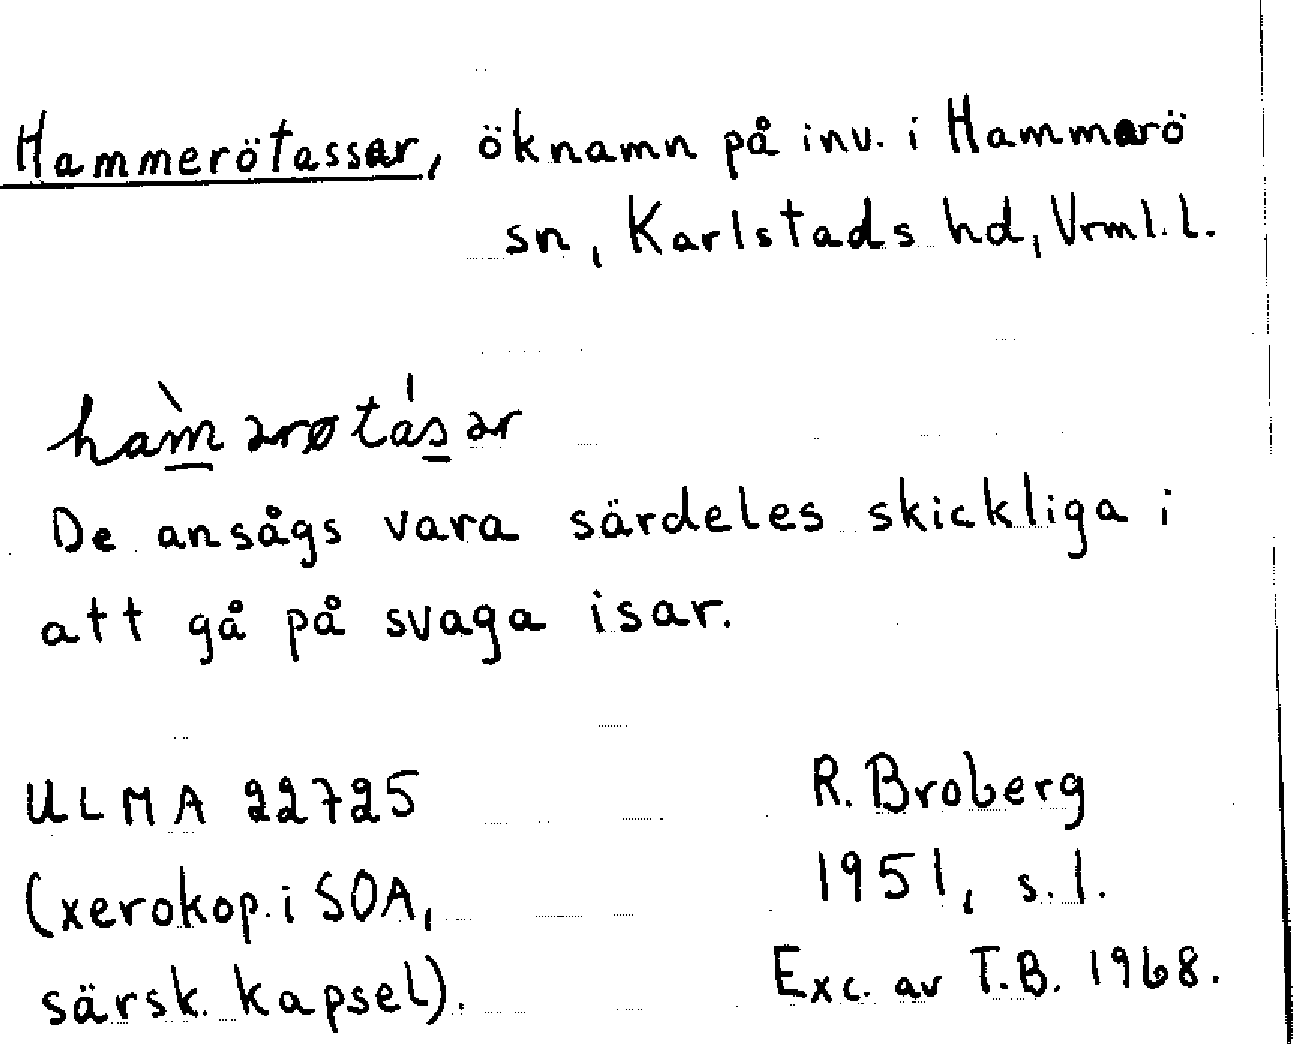 Hammerötassar, öknamn på inv. i Hammarö
sn, Karlstads hd, Vrml. l.
hàm̲ərøtás̲ər
De ansågs vara särdeles skickliga i
att gå på svaga isar.
ULMA 22725
R. Broberg
(xerokop. i SOA,
1951, s. 1.
särsk. kapsel).
Exc. av T.B. 1968.